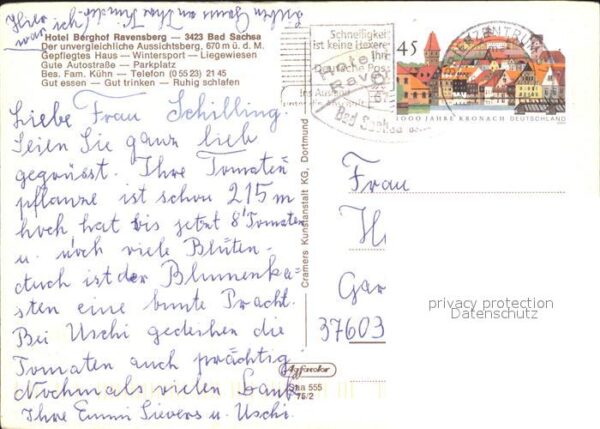 Hier war ich!
schönen Gruss an Ihre Kinder
Hotel Berghof Ravensberg — 3423 Bad Sachsa
Der unvergleichliche Aussichtsberg, 670 m ü. d. M.
Gepflegtes Haus — Wintersport — Liegewiesen
Gute Autostraße — Parkplatz
Bes. Fam. Kühn — Telefon (0 55 23) 21 45
Gut essen — Gut trinken — Ruhig schlafen
Liebe Frau Schilling.
Seien Sie ganz lieb
gegrüsst. Ihre Tomaten
pflanze ist schon 215 m
hoch hat bis jetzt 8 Tomaten
u. noch viele Blüten.
Auch ist der Blumenka-
sten eine bunte Pracht.
Bei Uschi gedeihen die
Tomaten auch prächtig
Nochmals vielen Dank
Ihre Emmi Sievers u. Uschi.
Cramers Kunstanstalt KG, Dortmund
Agfacolor
Saa 555
75/2
Schnelligkeit
ist keine Hexere
Ihre
Bad Sachsa
BRIEFZENTRUM
45
1000 JAHRE KRONACH DEUTSCHLAND
Frau
H
Gar
37603
privacy protection
Datenschutz